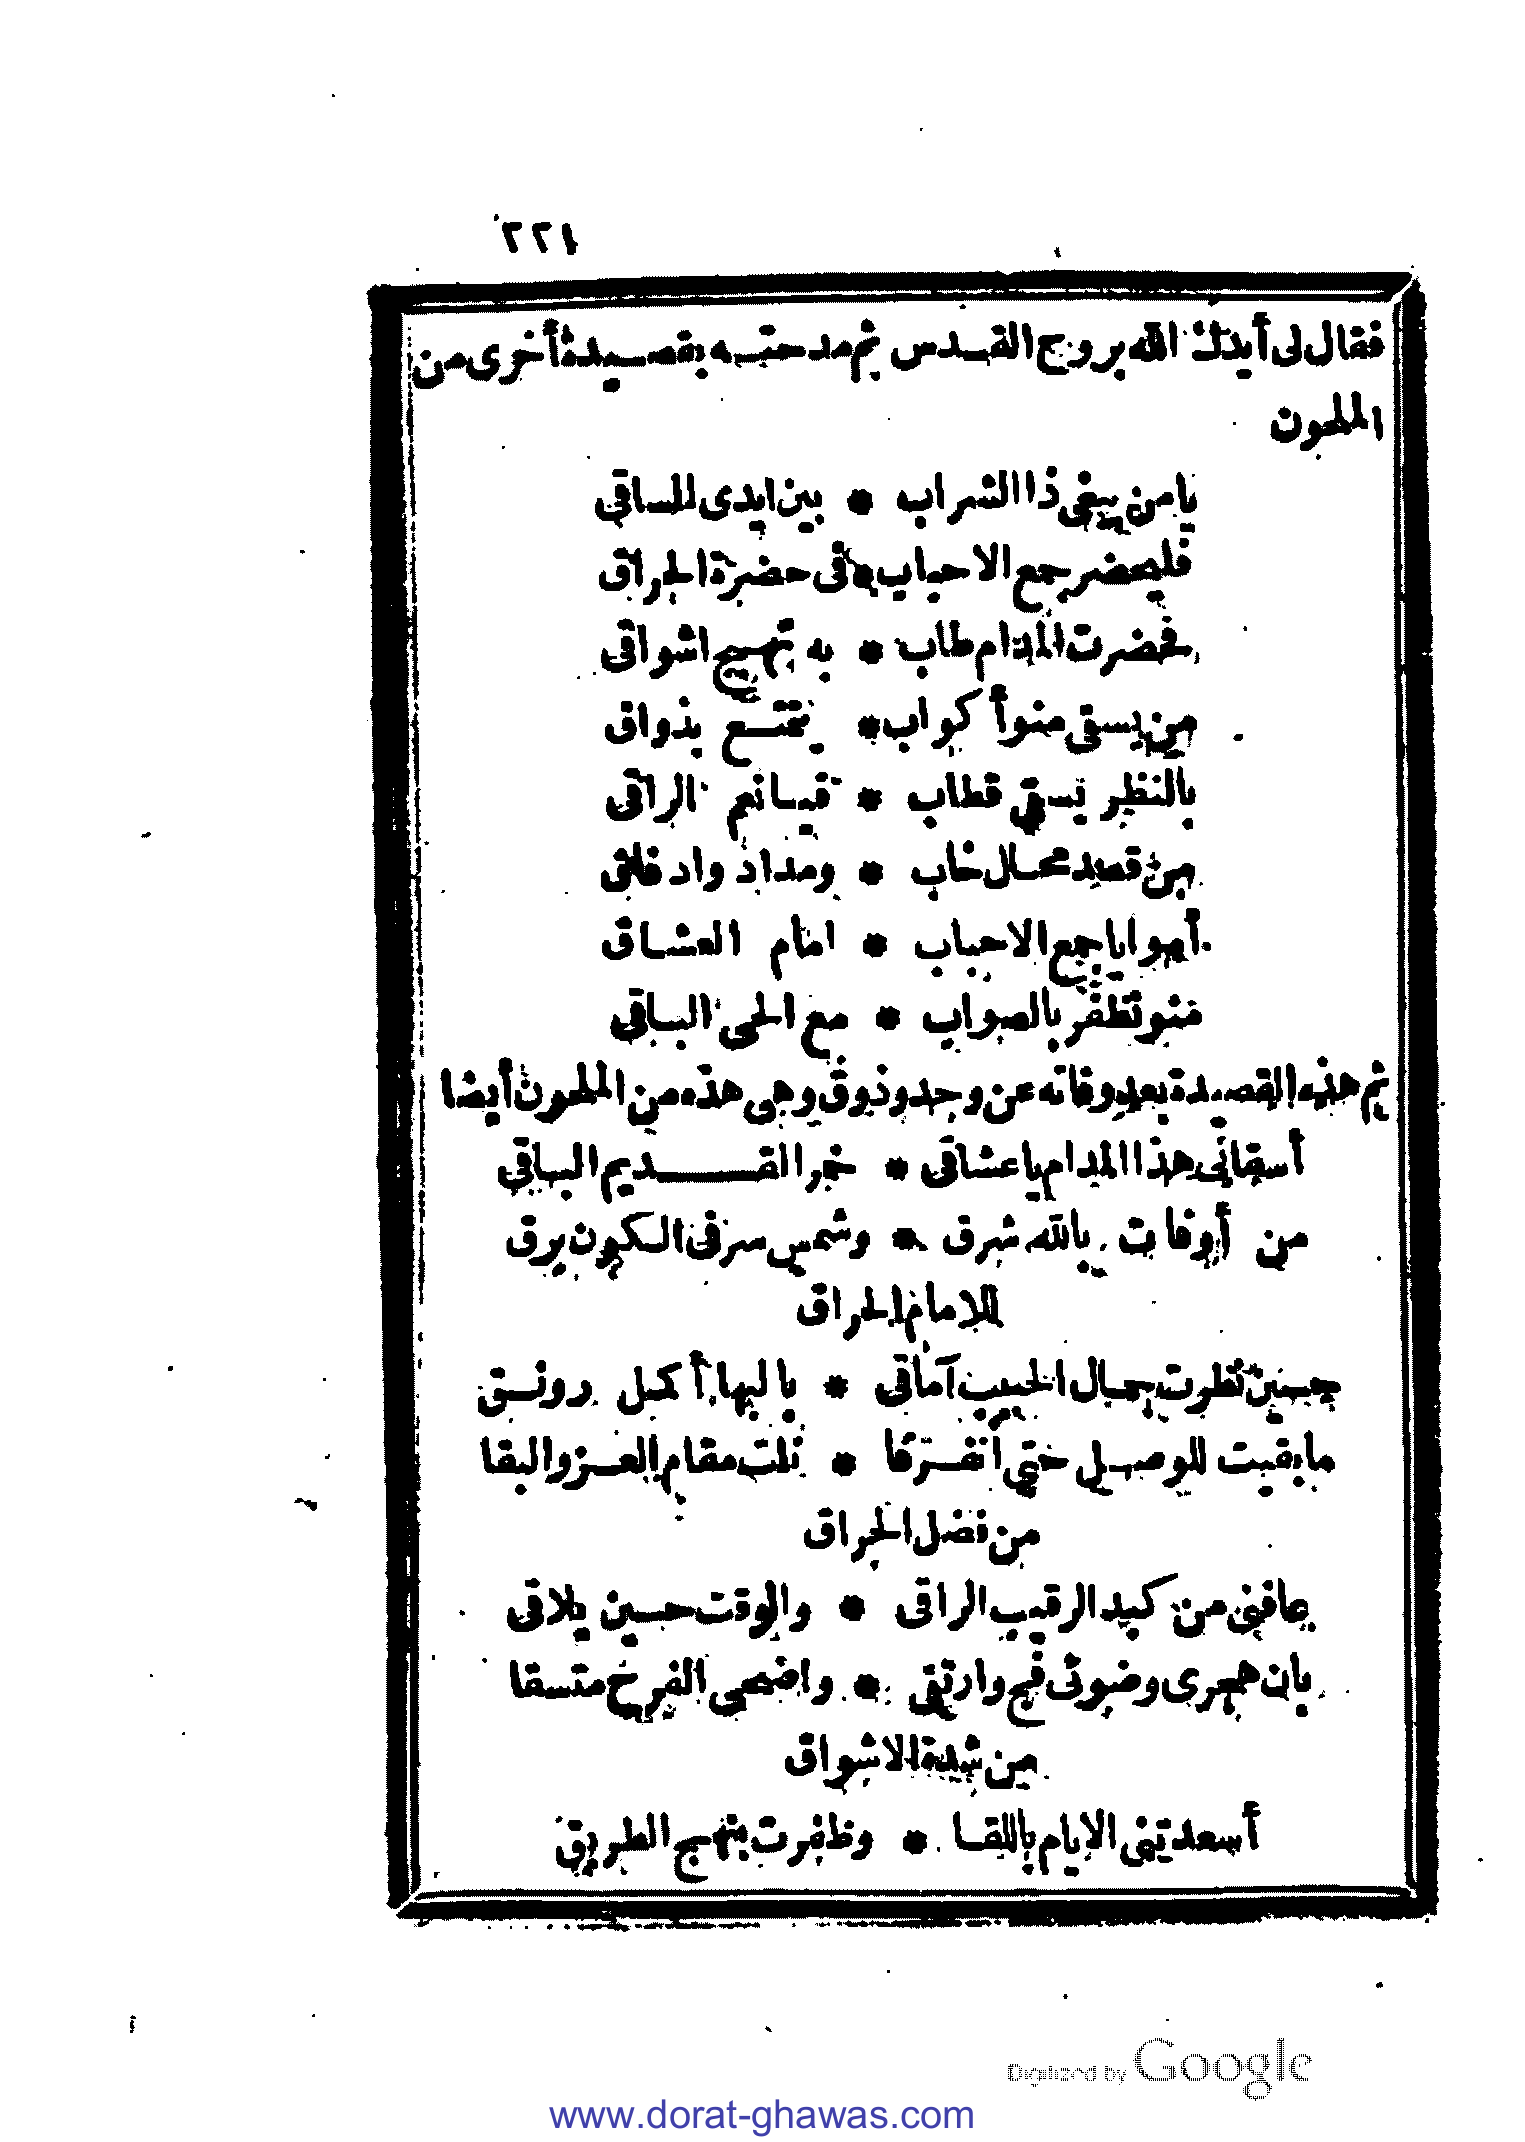 ٢٢١
فقال لى أيدك الله بروح القدس ثم مدحته بقصيدة أخرى من
الملحون
يا من يبغى ذا الشراب * بين ايدى للساقى
فليحضر جمع الاحباب * فى حضرة الحراق
فحضرت المدام طاب * به تهيج اشواقى
من يسقى منو أكواب * يتمتع بذواق
بالنظر نسقى قطاب * الراقى
من قصيد محال خاب * ومداد واد
أهو ايا جمع الاحباب * امام العشاق
منو تظفر بالصواب * مع الحى الباقى
ثم هذه القصيدة بعد وفاته عن وجد وذوق وهى هذه من الملحون أيضا
أسقانى هذا المدام يا عشاقى * خمر القديم الباقى
من أوفات بالله شرق * وشمس سر فى الكون برق
للامام الحراق
حين نظرت جمال الحبيب آماقى * بالبها أكمل رونق
ما بقيت للوصل حتى انفرقا * نلت مقام العز والبقا
من فضل الحراق
عافنى من كيد الرقيب الراقى * والوقت حسين يلاقى
بان هجرى وضوئى فج وارتقى * واضحى الفرح متسقا
من شدة الاشواق
أسعدتنى الايام باللقا * وظفرت بنهج الطريق
Digitized by Google
www.dorat-ghawas.com